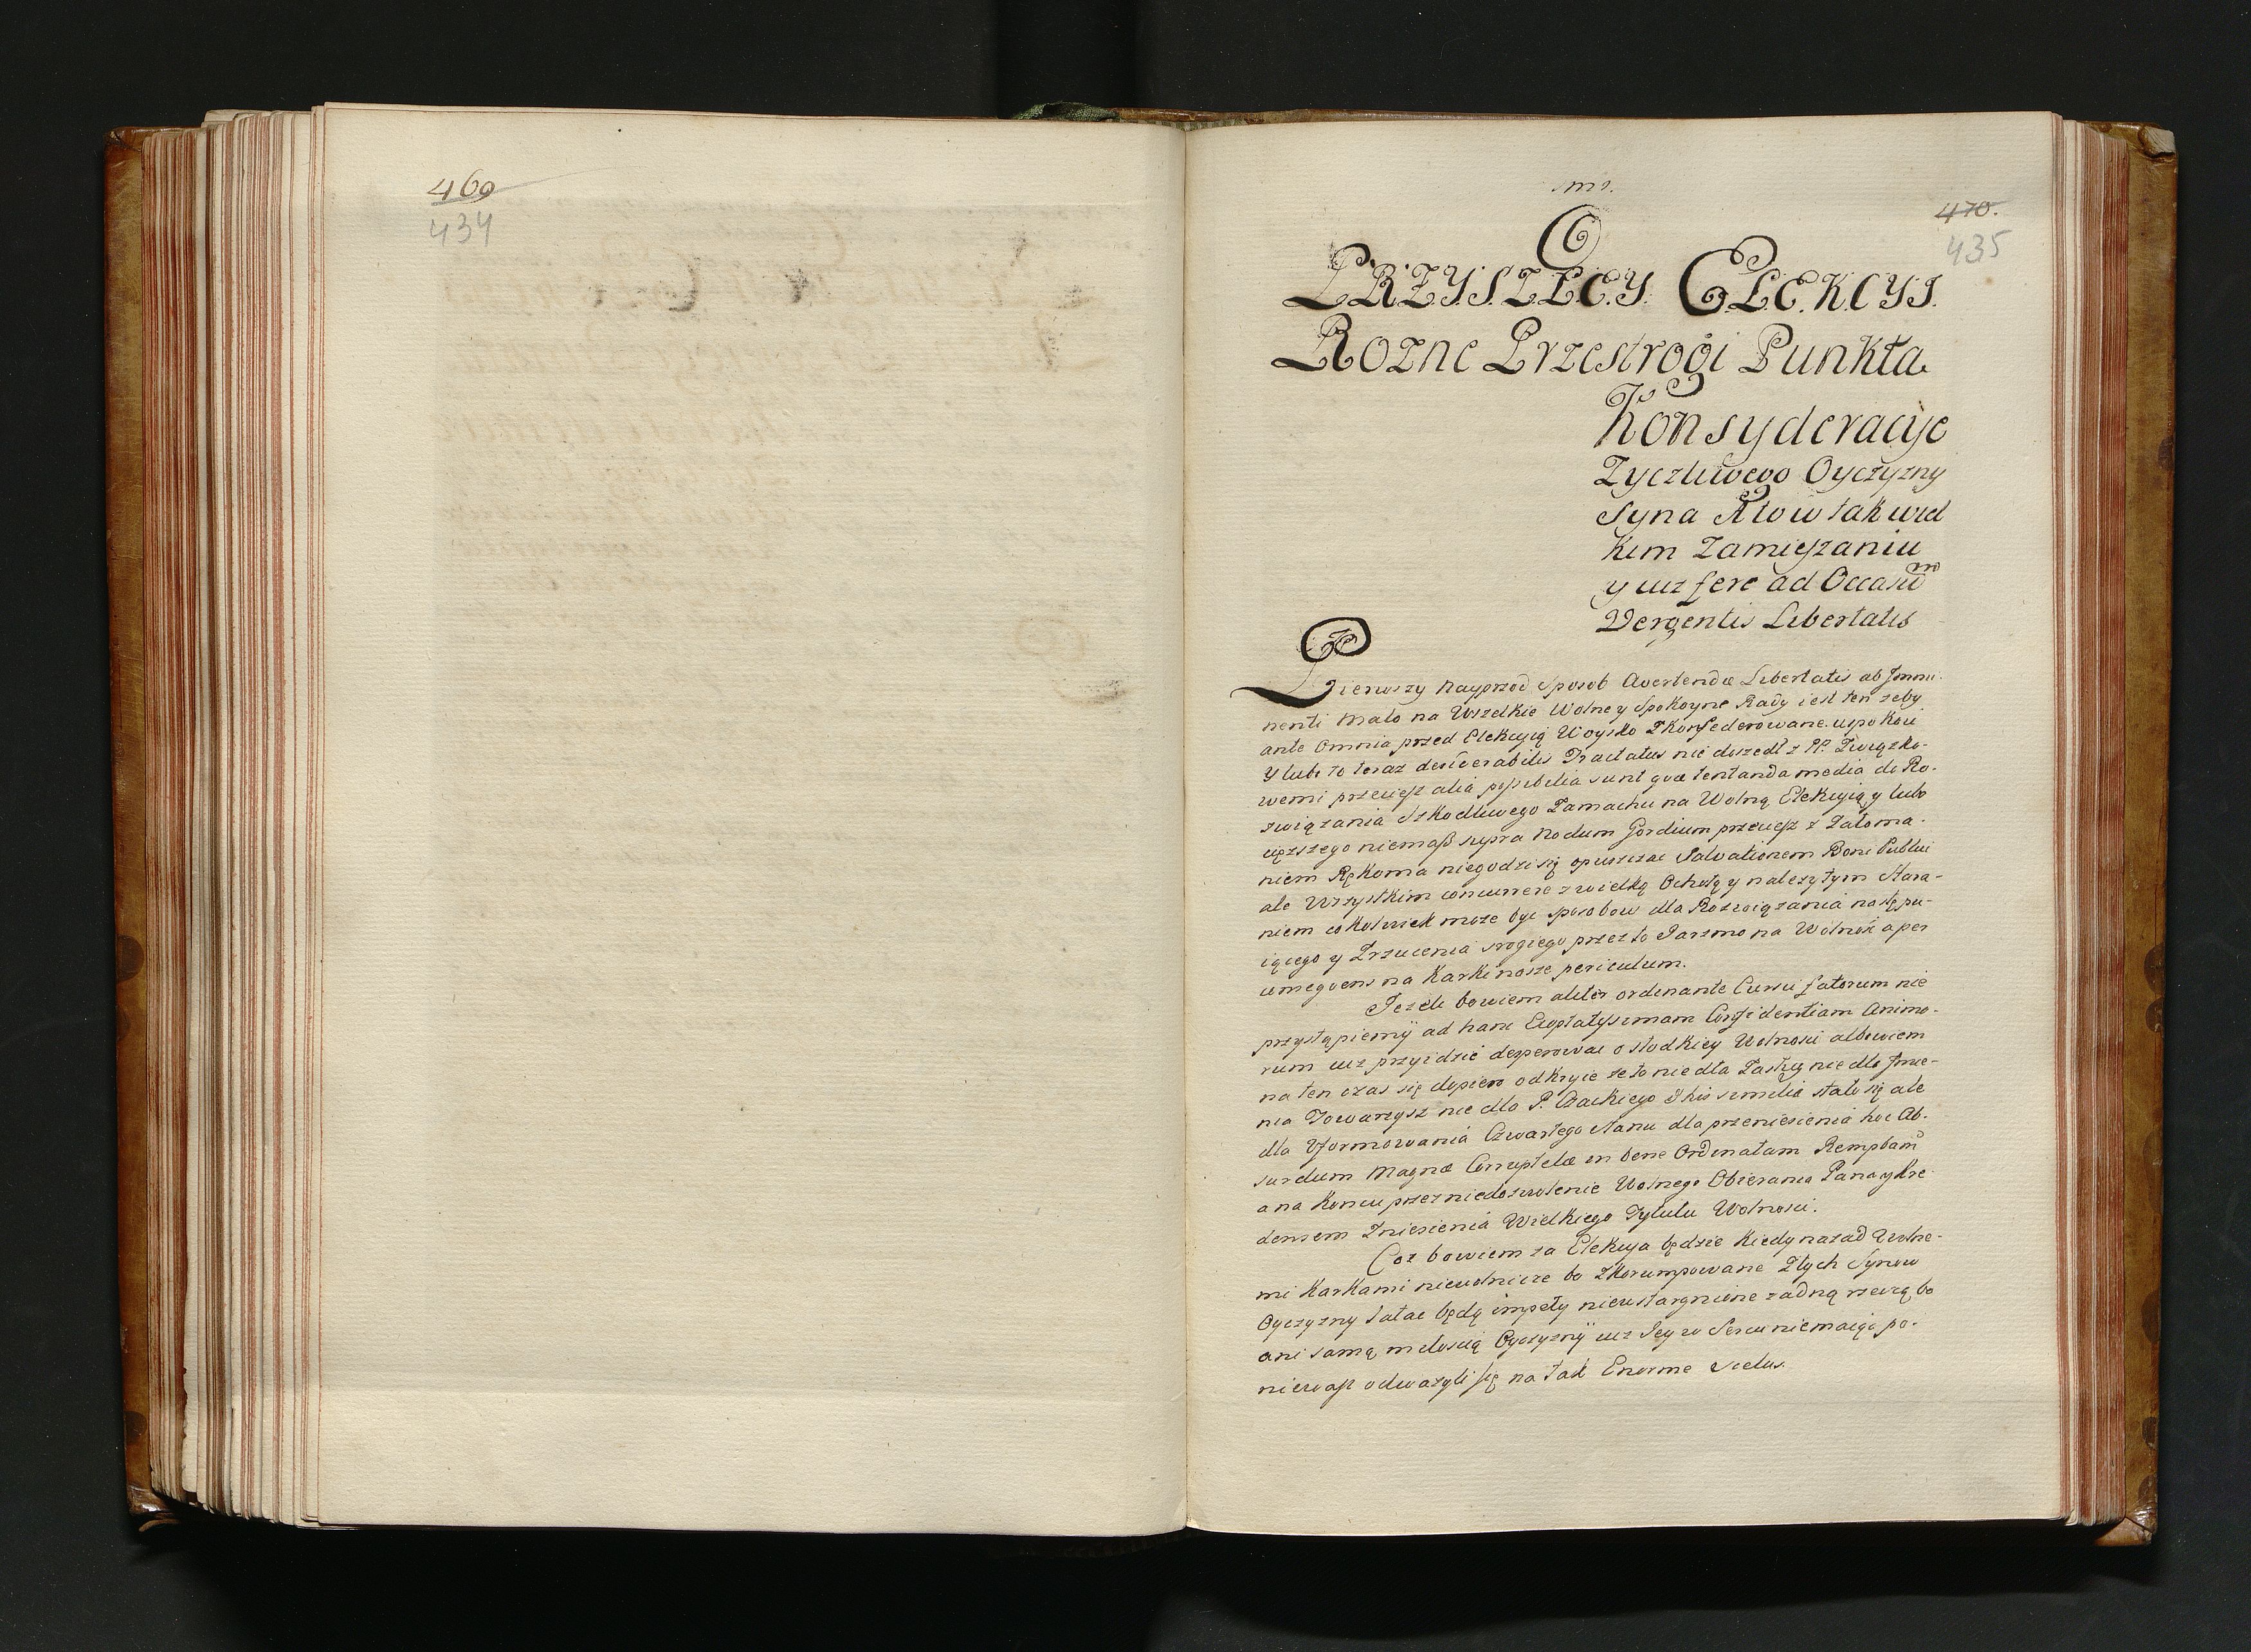 469
434
ms.
470.
435
O
PRZYSZŁEY ELEKCYI.
Rozne Przestrogi Punkta
Konsyderacye
Zyczliwego Oyczyzny
Syna Ktow tak wiel
kim Zamieszaniu
y iuz fere ad Occasū m
Vergentis Libertatis
Pierwszy Nayprzod Sposob Avertendæ Libertatis ab Immi-
nenti Malo na Wszelkie Wolne y Spokoyne Rady iest ten zeby
ante Omnia przed Elekcyią Woysko Zkonfederowane uspokoić
Y lubo to teraz desiderabilis Tractatus nie doszedł z PP. Związko-
wemi przecież alia possibilia sunt quæ tentanda media do Ro-
związania Szkodliwego Zamachu na Wolną Elekcyią y lubo
cięzszego niemasz supra Nodum Gordium przeciesz z Załoma-
niem Rękoma niegodzi się opuszczac Salvationem Boni Publici
ale Wszystkim concurrere z wielką Ochotą y nalezytym Stara-
niem cokolwiek moze byc sposobow dla Rozwiązania nastepu-
iącego y Zrzucenia srogiego przez to Jarzmo na Wolność aper
icmegvens na Karki nasze periculum.
Jezeli bowiem aliter ordinante Cursu fatorum nie
przystąpiemy ad hanc Exoptatyssimam Confidentiam Animo-
rum iuz przyidzie desperowac o słodkiey Wolnosci albowiem
na ten czas się dopiero odkryie ze to nie dla Zasług nie dla Imie-
nia Towarzysz nie dla P. Czackiego & his similia stało się ale
dla Uformowania Czwartego Stanu dla przeniesienia hoc Ab-
surdum Magnæ Corruptelæ in bene Ordinatam Rempbam̄
a na koncu przez niedozwolenie Wolnego Obierania Pana y Kre-
densem Zniesienia Wielkiego Tytułu Wolnosci.
Coz bowiem za Elekcya będzie kiedy nazad Wolne-
mi Karkami niewolnicze bo Zkorumpowane Złych Synow
Oyczyzny latac będą impety nieustargnione zadną rzeczą bo
ani samą miłoscią Oyczyzny iuz Jey w Sercu niemaiąc po-
niewasz odwazyli się na tak Enorme Scelus.